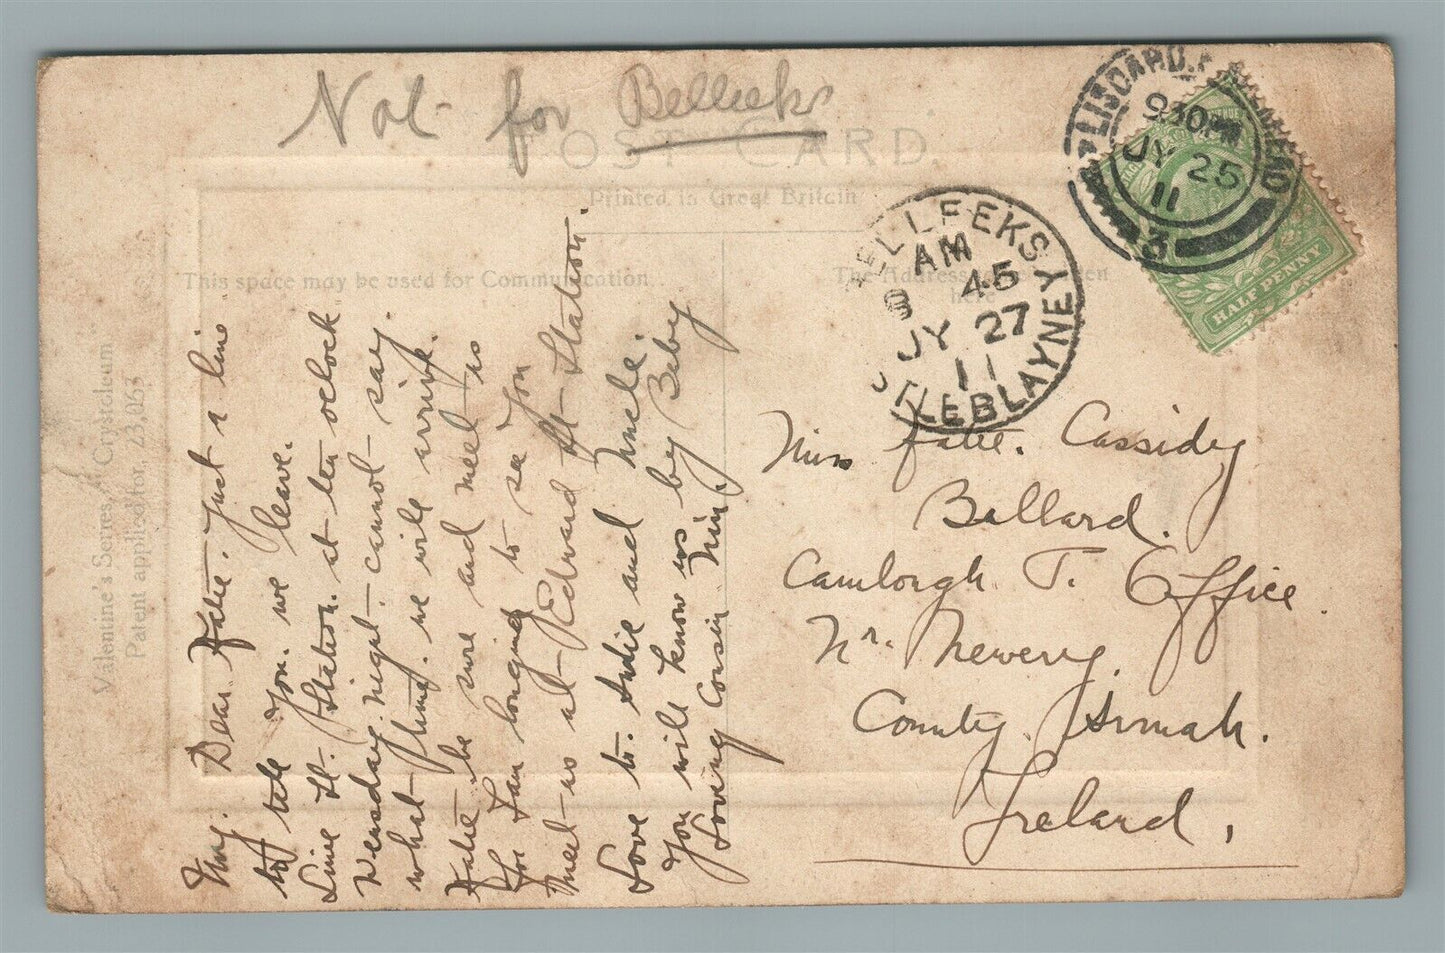 Not for Belleeks
POST CARD
Printed in Great Britain
This space may be used for Communication
The Address
here
Valentine's Series, Crystoleum
Patent applied for, 23,063
LISCARD.
930PM
JY 25
11
3
HALF PENNY
BELLEEKS
AM
8 45
JY 27
11
STLEBLAYNEY
My. Dear Katie. Just a line
to tell you. we leave.
Lime St. Station. at ten oclock
Wensday. night. cannot say.
what time. we will arrive.
Katie be sure and meet us
for I am longing to see you
meet us at Edward St Station.
Love to. Susie and Uncle.
You will know us by Baby
Loving Cousin Min.
Miss Katie. Cassidy
Ballard.
Camlorgh T. Office.
Nr. Newerry.
County. Armah.
Ireland,